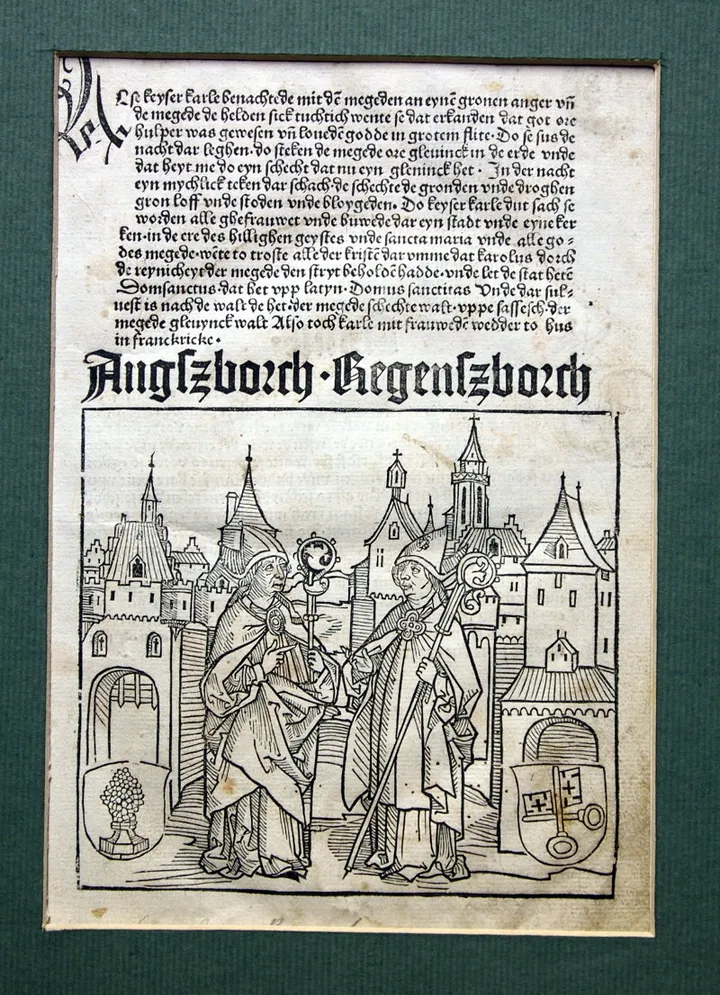 Alse keyser karle benachtede mit dē megeden an eynē gronen anger vn̄
de megede de helden sick tuchtich wente se dat erkanden dat got ore
hulper was gewesen vn̄ louedē godde in grotem flite· Do se sus de
nacht dar leghen· do steken de megede ore gleuinck in de erde vnde
dat heyt me do eyn schecht dat nu eyn gleninck het· In der nacht
eyn mychlick teken dar schach· de schechte de gronden vnde droghen
gron loff vnde stoden vnde bloygeden· Do keyser karle dut sach se
worden alle ghefrauwet vnde buwede dar eyn stadt vnde eyne ker
ken·in de ere des hillighen geystes vnde sancta maria vnde alle go⸗
des megede·wēte to troste alle der kristē dar vmme dat karolus dorch
de reynicheyt der megede den stryt beholdē hadde·vnde let de stat hetē
Domsanctus·dat het vpp latyn·Domus sanctitas Vnde dar sul⸗
uest is nach de walt de het·der megede schechte walt·vppe sassesch·der
megede gleuynck walt Also toch karle mit frauwedē wedder to hus
in franckricke·
Augszborch·Regenszborch